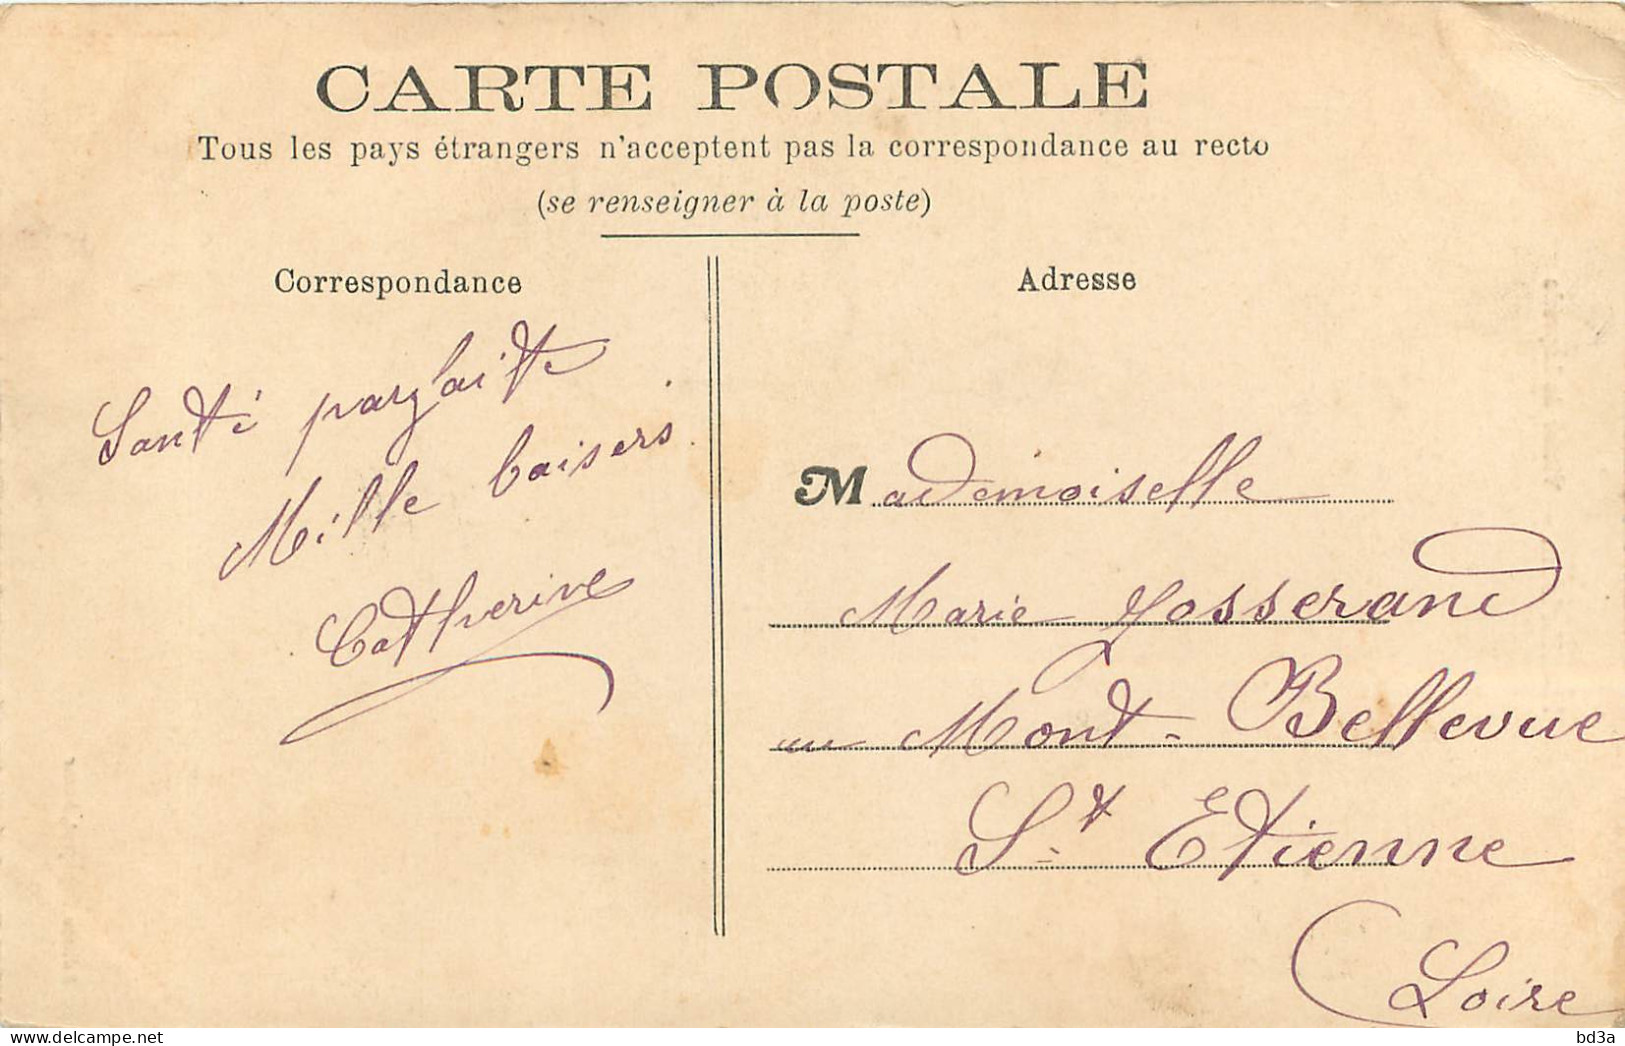 CARTE POSTALE
Tous les pays étrangers n'acceptent pas la correspondance au recto
(se renseigner à la poste)
Correspondance
Santé parfaite
Mille baisers.
Catherine
Adresse
Mademoiselle
Marie Josserand
au Mont-Bellevue
St Etienne
Loire
bd3a